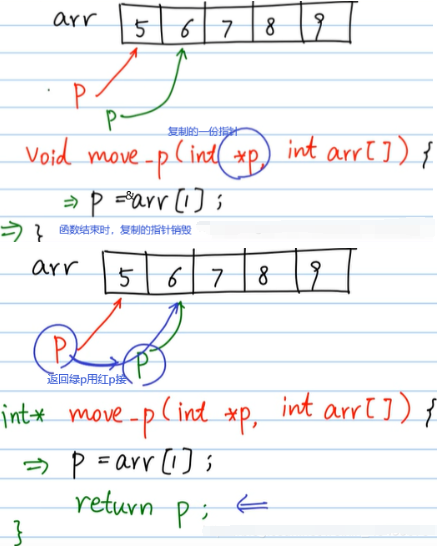 arr 5 6 7 8 9
p
p
复制的一份指针
void move_p(int *p, int arr[]) {
⇒ p =&arr[1];
⇒ } 函数结束时，复制的指针销毁
arr 5 6 7 8 9
p p
返回绿p用红p接
int* move_p(int *p, int arr[]) {
⇒ p = arr[1];
return p; ⇐
}